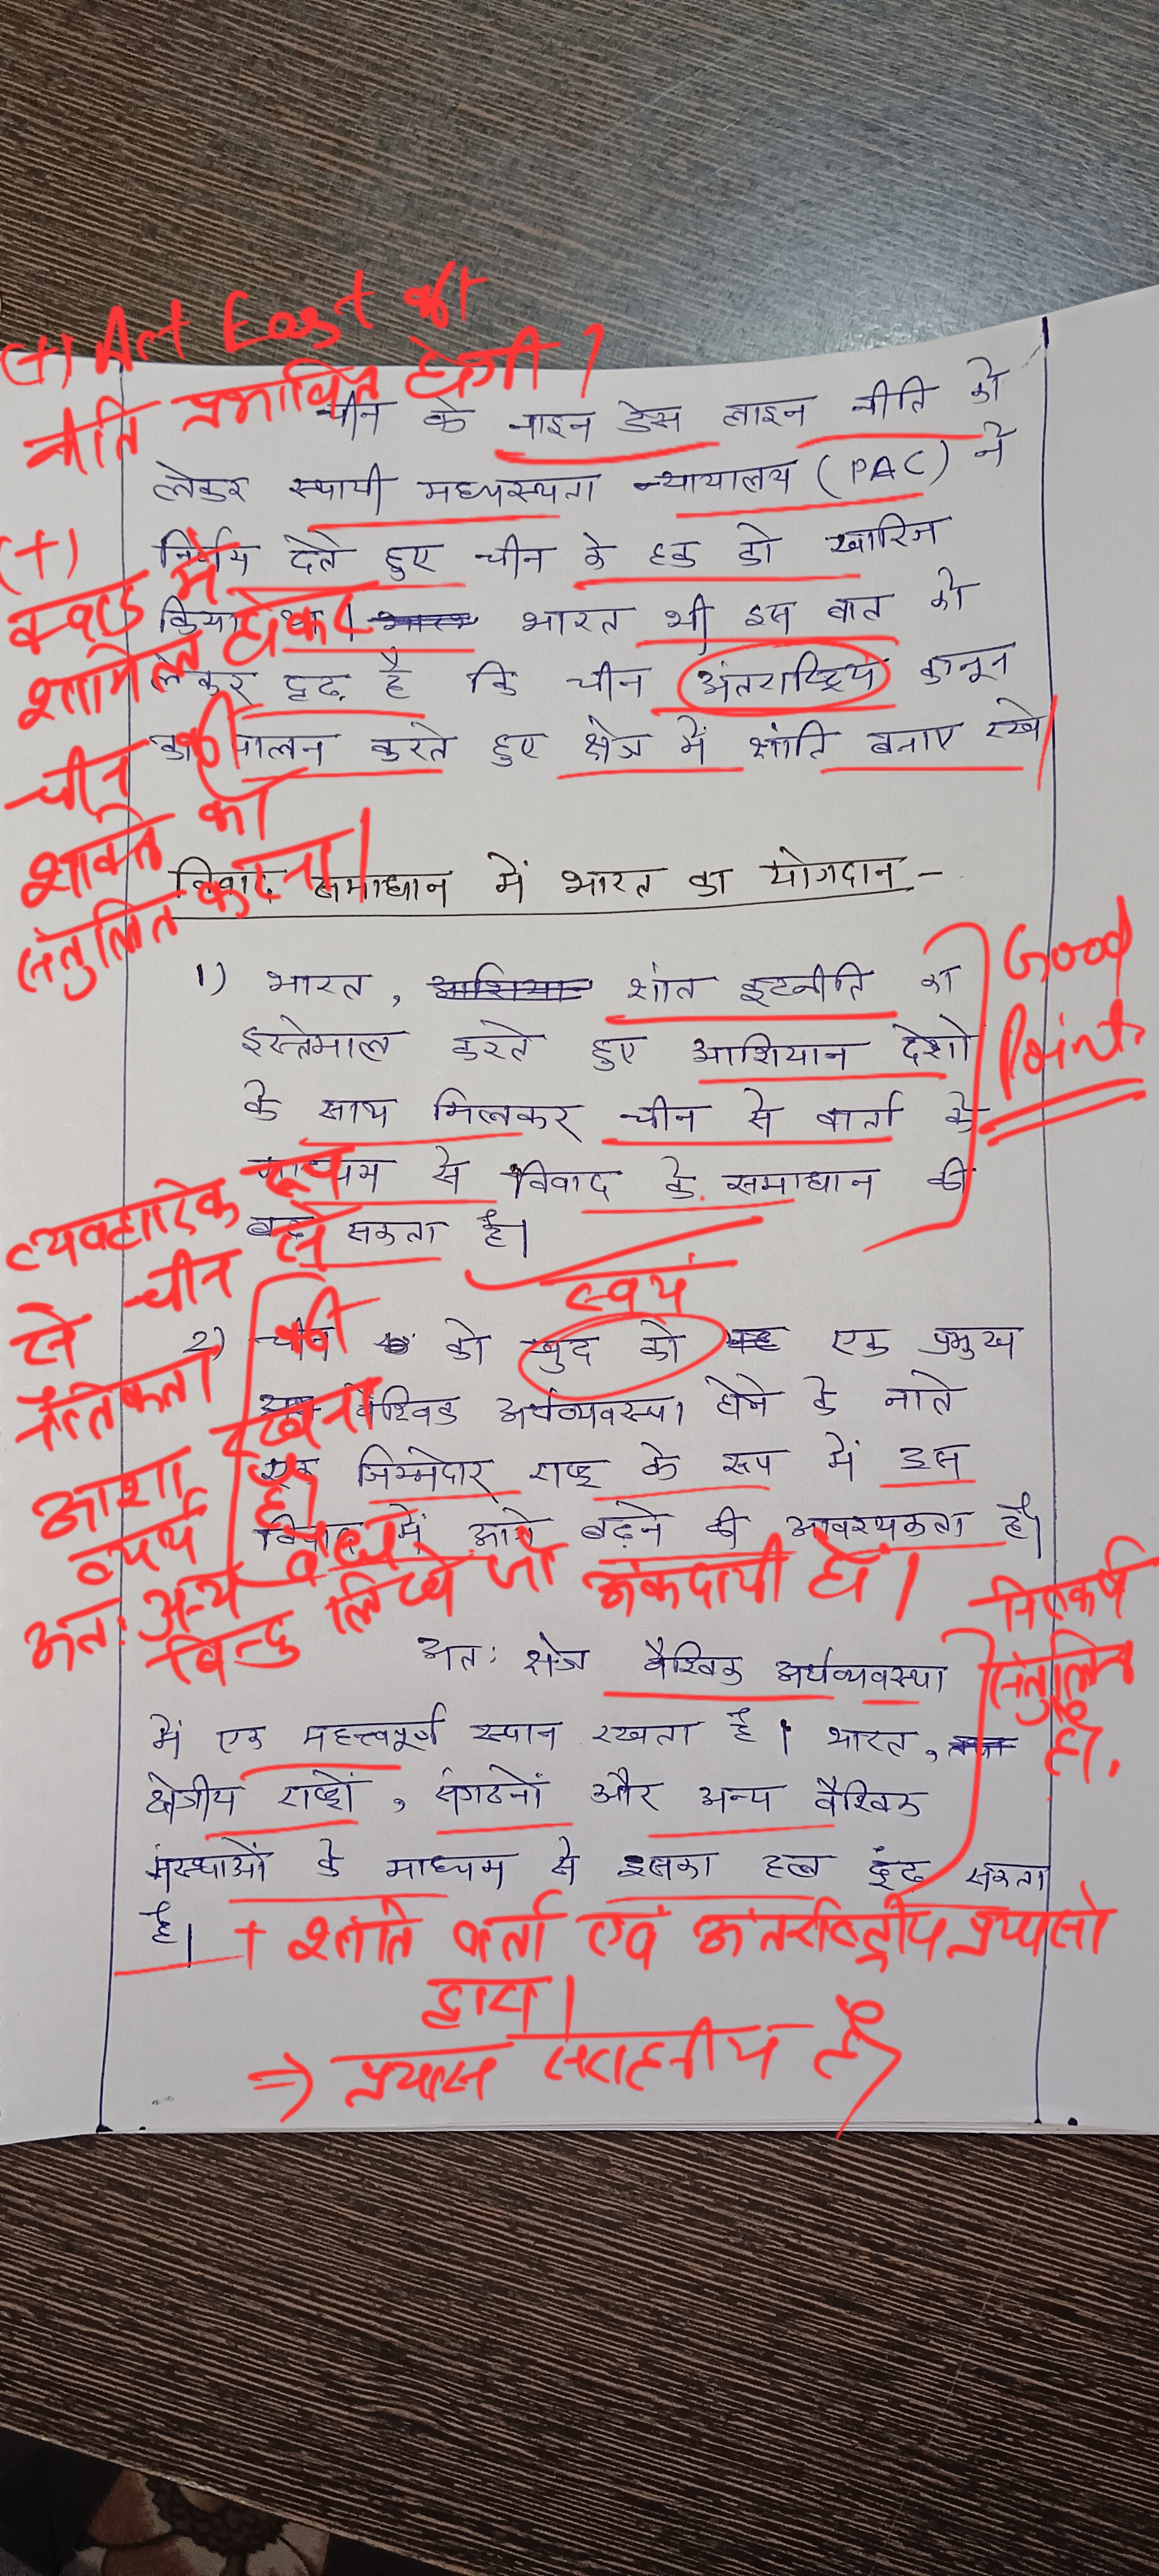 (+) Act East की
नीति प्रभावित होगी ?
चीन के नाइन डैस लाइन नीति को
लेकर स्थायी मध्यस्थता न्यायालय (PAC) ने
निर्णय देते हुए चीन के हक को खारिज
किया था। भारत भी इस बात को
लेकर दृढ़ है कि चीन अंतराष्ट्रिय कानून
का पालन करते हुए क्षेत्र में शांति बनाए रखे।
(+)
क्वाड में
शामिल होकर
चीन की
शक्ति को
संतुलित करना।
विवाद समाधान में भारत का योगदान -
1) भारत, शांत कुटनीति का
इस्तेमाल करते हुए आशियान देशो
के साथ मिलकर चीन से वार्ता के
माध्यम से विवाद के समाधान की
बढ़ सकता है।
Good
Points
2) चीन को खुद को एक प्रमुख
वैश्विक अर्थव्यवस्था होने के नाते
एक जिम्मेदार राष्ट्र के रूप में इस
विवाद में आगे बढ़ने की आवश्यकता है।
स्वयं
व्यवहारिक रूप
से चीन से
नैतिकता की
आशा रखना
व्यर्थ है।
अतः अन्य
बिन्दु लिखे जो अंकदायी हो।
अतः क्षेत्र वैश्विक अर्थव्यवस्था
में एक महत्त्वपूर्ण स्थान रखता है। भारत,
क्षेत्रीय राष्ट्रों, संगठनों और अन्य वैश्विक
संस्थाओं के माध्यम से इसका हल ढूंढ सकता
है।
निष्कर्ष
संतुलित
है।
+ शांति वार्ता एवं अंतर्राष्ट्रीय प्रयासो
द्वारा।
⇒ प्रयास सराहनीय है